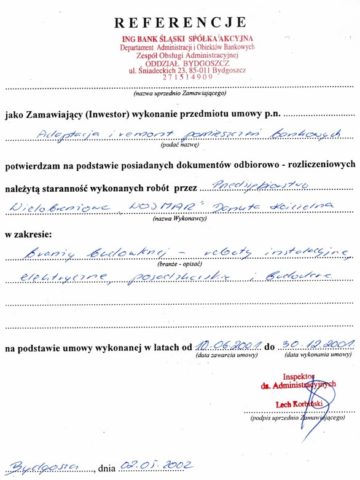 REFERENCJE
ING BANK ŚLĄSKI SPÓŁKA AKCYJNA
Departament Administracji i Obiektów Bankowych
Zespół Obsługi Administracyjnej
ODDZIAŁ BYDGOSZCZ
ul. Śniadeckich 23, 85-011 Bydgoszcz
271514909
(nazwa uprzednio Zamawiającego)
jako Zamawiający (Inwestor) wykonanie przedmiotu umowy p.n.
Adaptacja i remont pomieszczeń bankowych
(podać nazwę)
potwierdzam na podstawie posiadanych dokumentów odbiorowo - rozliczeniowych
należytą staranność wykonanych robót przez Przedsiębiorstwo
Wielobranżowe "WODMAR" Danuta
(nazwa Wykonawcy)
w zakresie:
Branży budowlanej - roboty instalacyjne,
(branże - opisać)
elektryczne, posadzkarskie i budowlane
na podstawie umowy wykonanej w latach od 10.06.2001 do 30.12.2001
(data zawarcia umowy) (data wykonania umowy)
Inspektor
ds. Administracyjnych
Lech Korbiński
(podpis uprzedniego Zamawiającego)
Bydgoszcz, dnia 02.01.2002